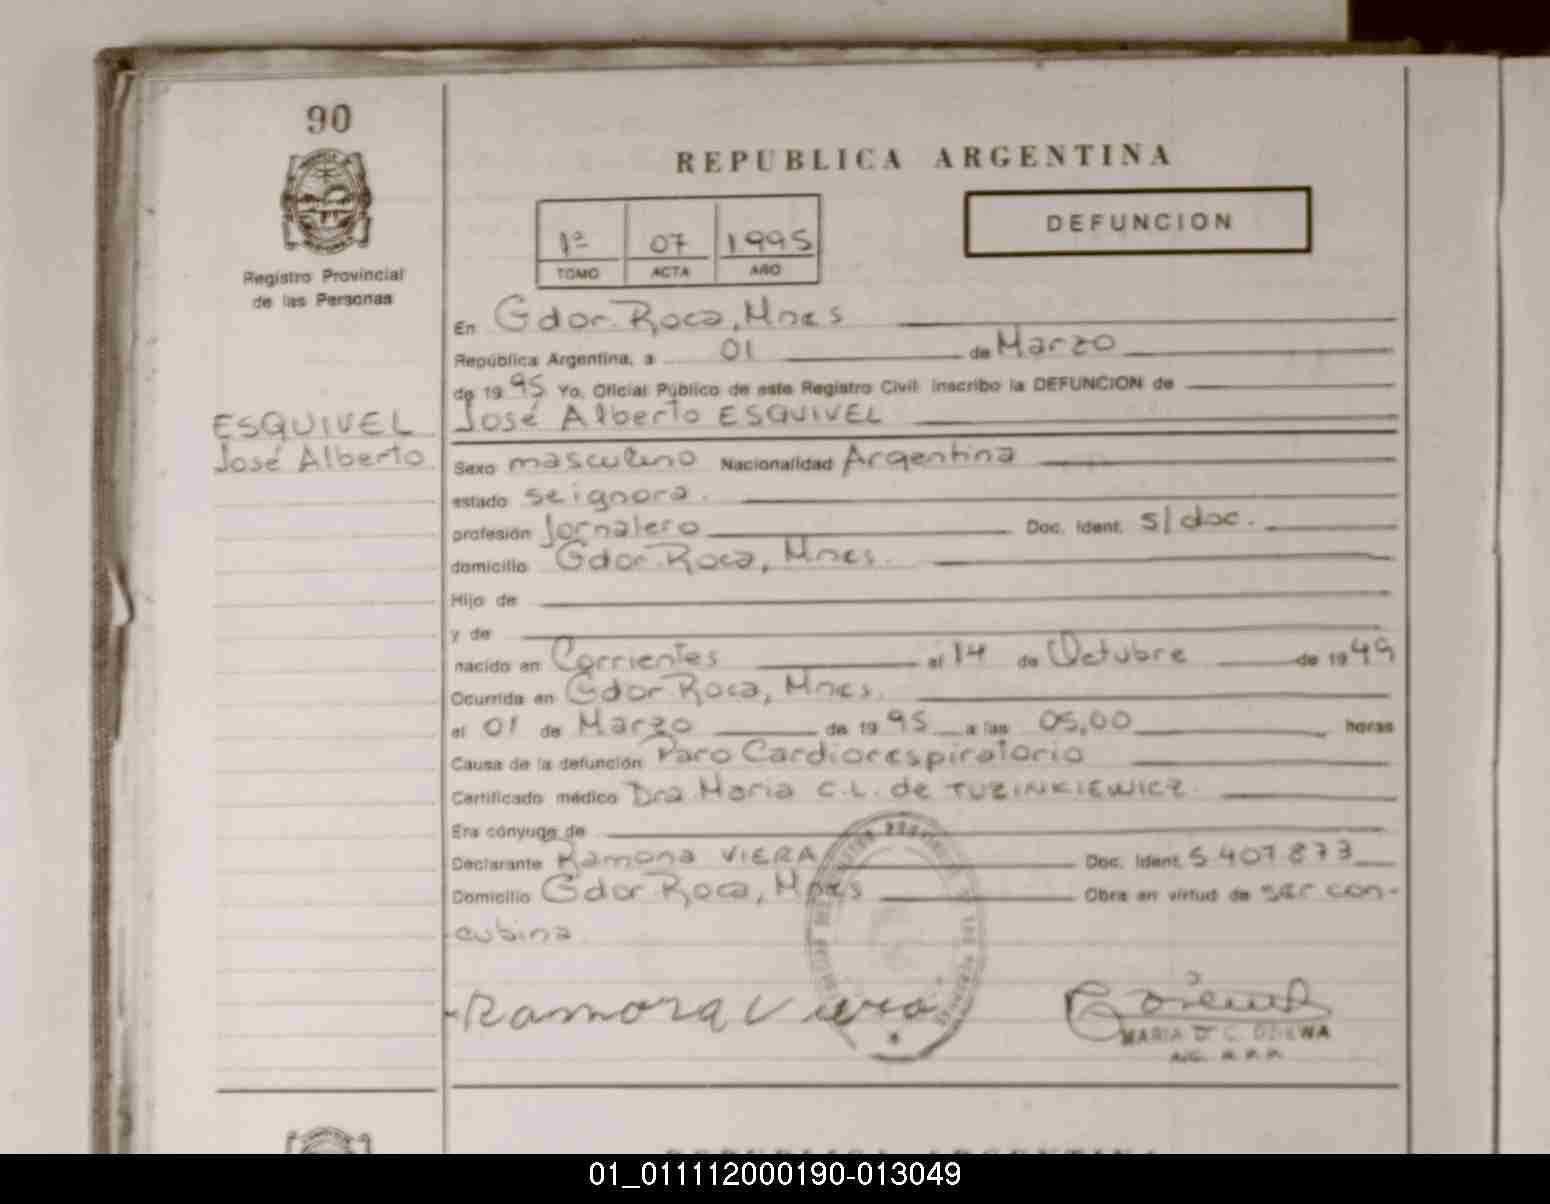 90
REPUBLICA ARGENTINA
DEFUNCION
1º 07 1995
TOMO ACTA AÑO
Registro Provincial
de las Personas
En Gdor. Roca, Mnes
República Argentina, a 01 de Marzo
de 1995 Yo, Oficial Público de este Registro Civil inscribo la DEFUNCION de
ESQUIVEL
José Alberto
José Alberto ESQUIVEL
Sexo masculino Nacionalidad Argentina
estado se ignora.
profesión Jornalero Doc. Ident. s/doc.
domicilio Gdor. Roca, Mnes.
Hijo de
y de
nacido en Corrientes el 14 de Octubre de 1949
Ocurrida en Gdor Roca, Mnes.
el 01 de Marzo de 1995 a las 05,00 horas
Causa de la defunción Paro Cardiorespiratorio
Certificado médico Dra Maria C.L. de TUZINKIEWICZ
Era cónyuge de
Declarante Ramona VIERA Doc. Ident. 5.407.873
Domicilio Gdor Roca, Mnes Obra en virtud de ser con-
cubina
Ramona Viera
MARIA D. C.
01_011112000190-013049